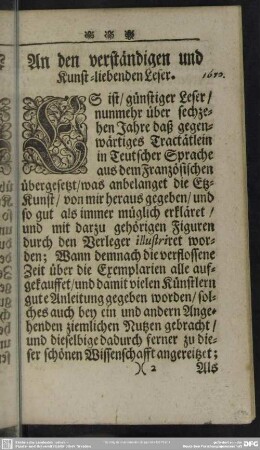 An den verständigen und
Kunst-liebenden Leser.
1670.
ES ist/ günstiger Leser/
nunmehr über sechze-
hen Jahre daß gegen-
wärtiges Tractätlein
in Teutscher Sprache
aus dem Französischen
übergesetzt/ was anbelanget die Etz-
Kunst/ von mir heraus gegeben/ und
so gut als immer müglich erkläret/
und mit darzu gehörigen Figuren
durch den Verleger illustriret wor-
den; Wann demnach die verflossene
Zeit über die Exemplarien alle auf-
gekauffet/ und damit vielen Künstlern
gute Anleitung gegeben worden/ sol-
ches auch bey ein und andern Ange-
henden ziemlichen Nutzen gebracht/
und dieselbige dadurch ferner zu die-
ser schönen Wissenschafft angereitzet;
)( 2 Als